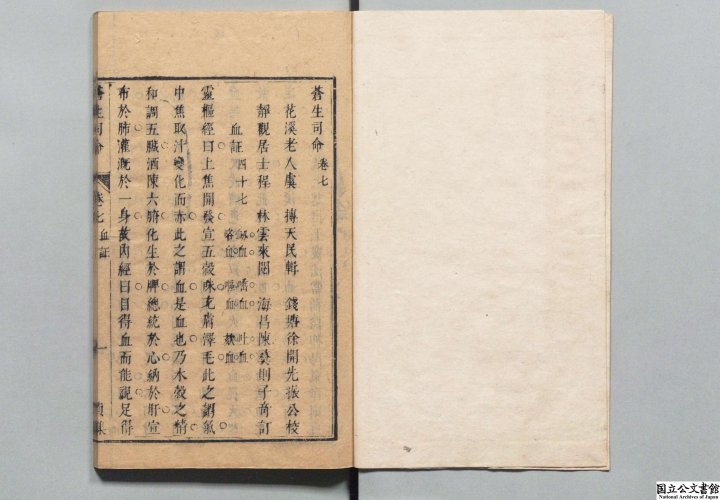 蒼生司命 卷七
花溪老人虞 摶天民輯 錢塘徐開先振公校
靜觀居士程 林雲來閱 海昌陳 則子 訂
血証 四十七 衂血 咯血 吐血
靈樞經曰上焦開發宣五穀味充膚澤毛此之謂氣
中焦取汁變化而赤此之謂血是血也乃水穀之精
和調五臟洒陳六腑化生於脾總統於心納於肝宣
布於肺灌溉於一身故內經曰目得血而能視足得
蒼生司命
卷七 血証
一
貞集
国立公文書館
National Archives of Japan